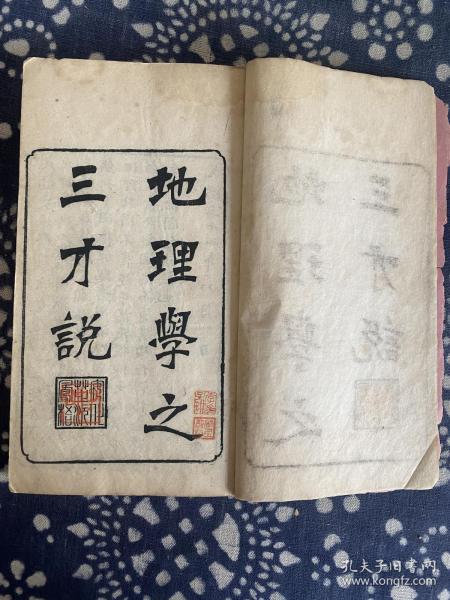 地理學之
三才說
孔夫子旧书网
www.kongfz.com